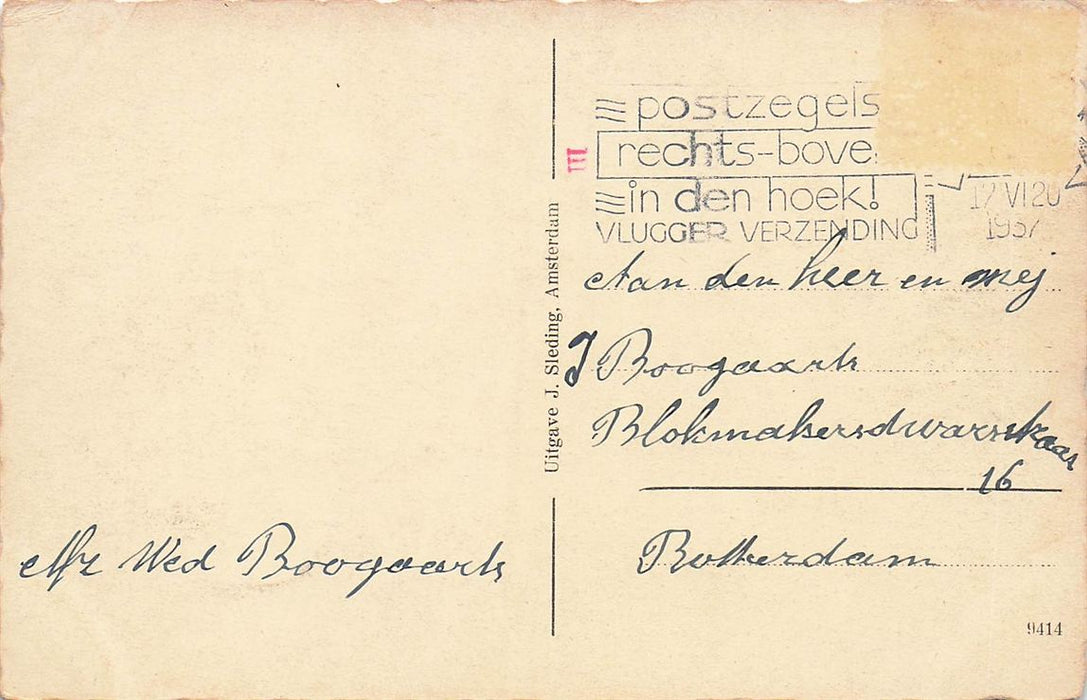 postzegels
rechts-bove
in den hoek!
VLUGGER VERZENDING
12 VI 20
1937
III
Uitgave J. Sleding, Amsterdam
Aan den heer en mej
J Boogaarts
Blokmakersdwarsstraat
16
Rotterdam
Afz Wed Boogaarts
9414